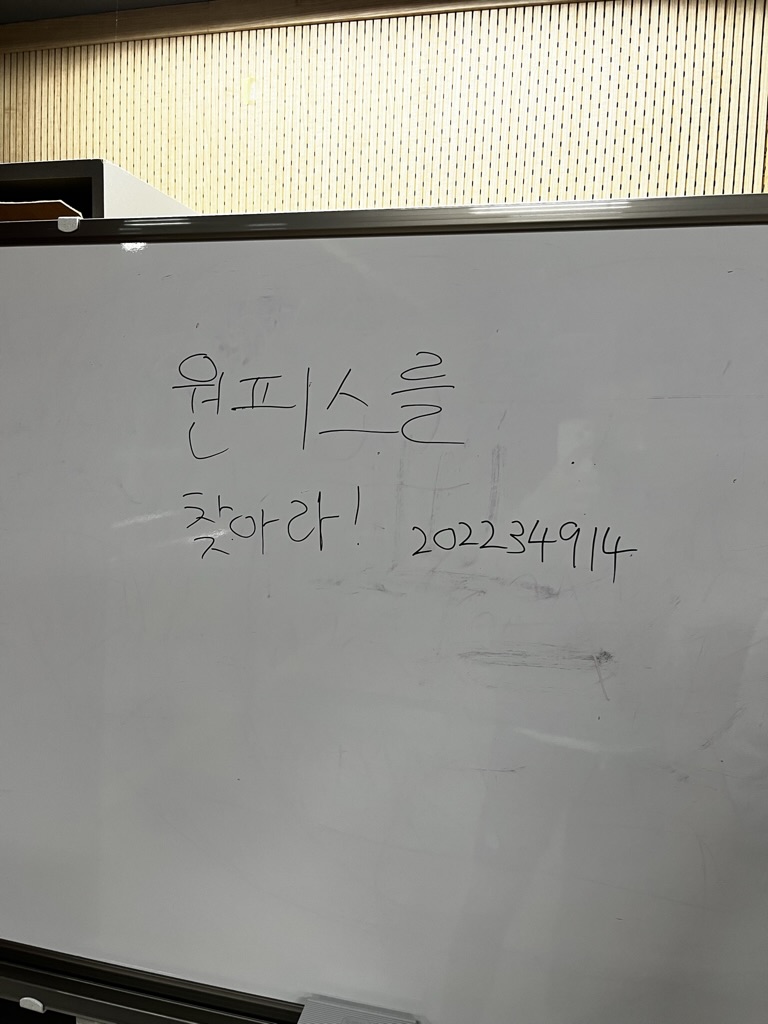 원피스를
찾아라! 202234914